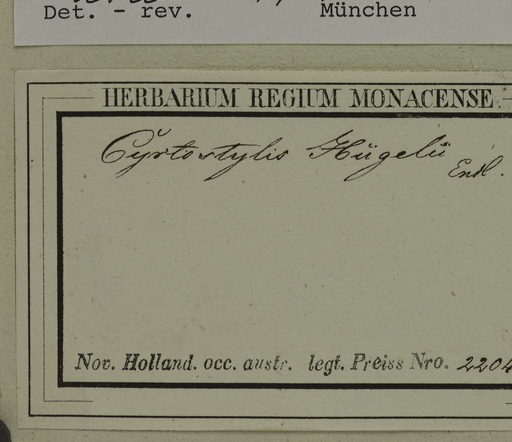 Det. - rev. München
HERBARIUM REGIUM MONACENSE.
Cyrtostylis Hügelii
Endl.
Nov. Holland. occ. austr. legt. Preiss Nro. 2204